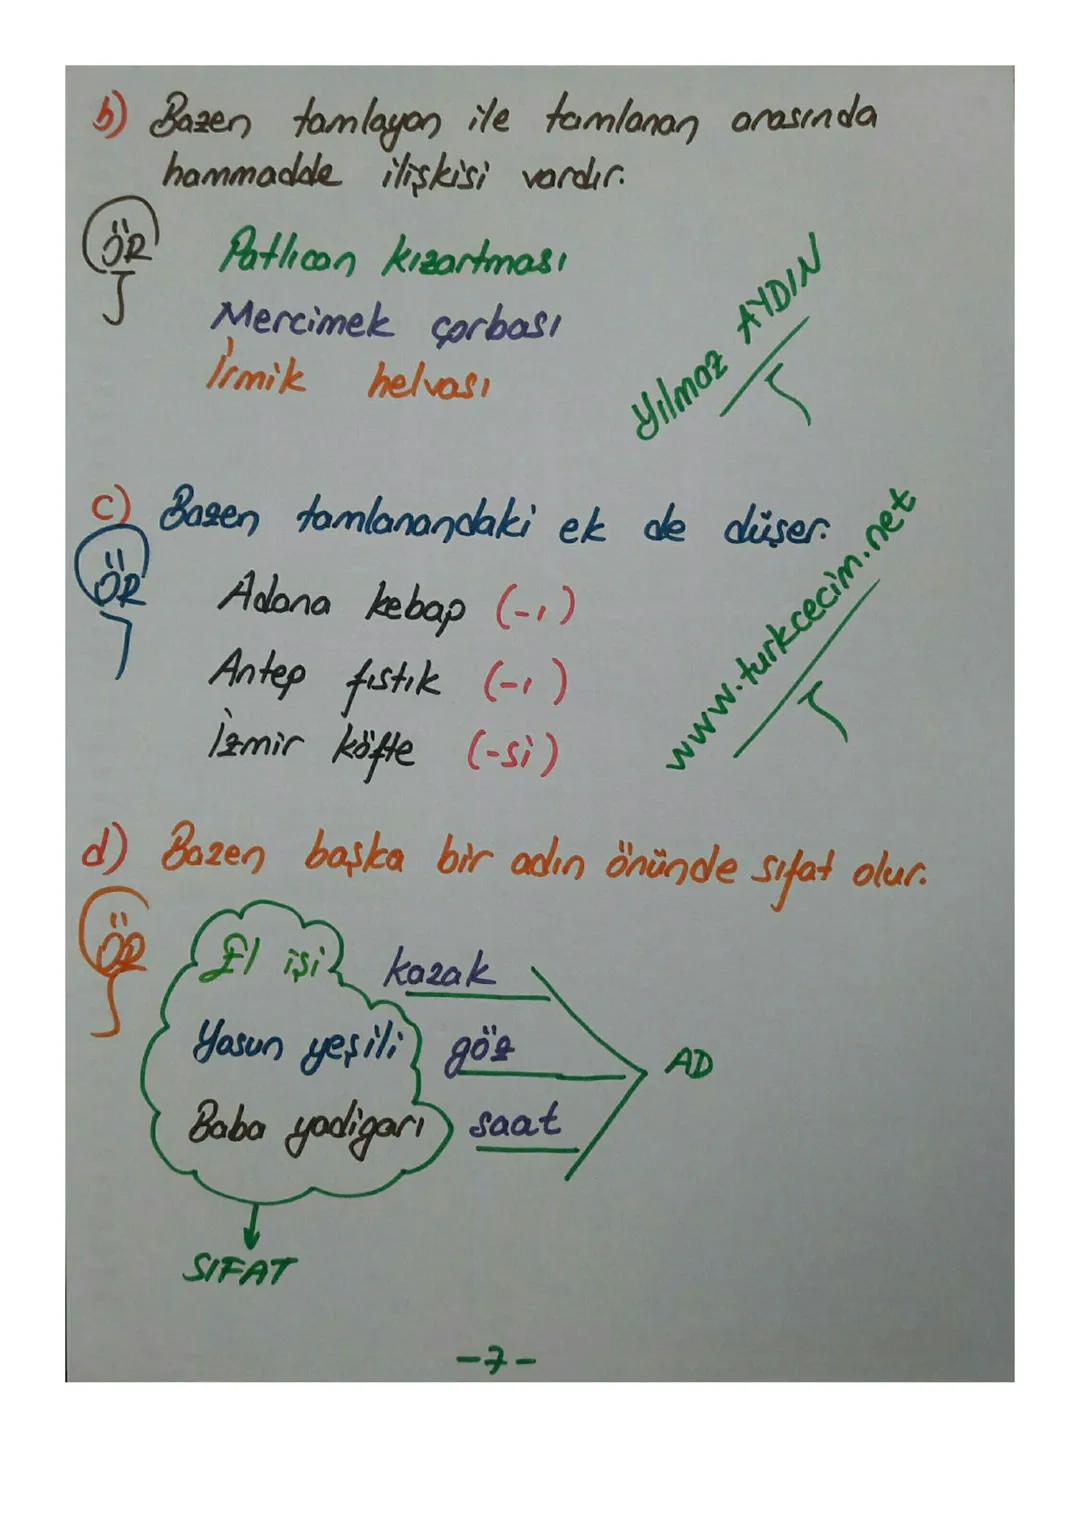 b) Bazen tamlayan ile tamlanan arasında
hammadde ilişkisi vardır.
ÖR
Patlıcan kızartması
Mercimek çorbası
İrmik helvası
Yılmaz AYDIN
c) Bazen tamlanandaki ek de düşer.
ÖR
Adana kebap (-ı)
Antep fıstık (-ı)
İzmir köfte (-si)
www.turkcecim.net
d) Bazen başka bir adın önünde sıfat olur.
ÖR
El işi kazak
Yosun yeşili göz
Baba yadigarı saat
AD
SIFAT
-7-